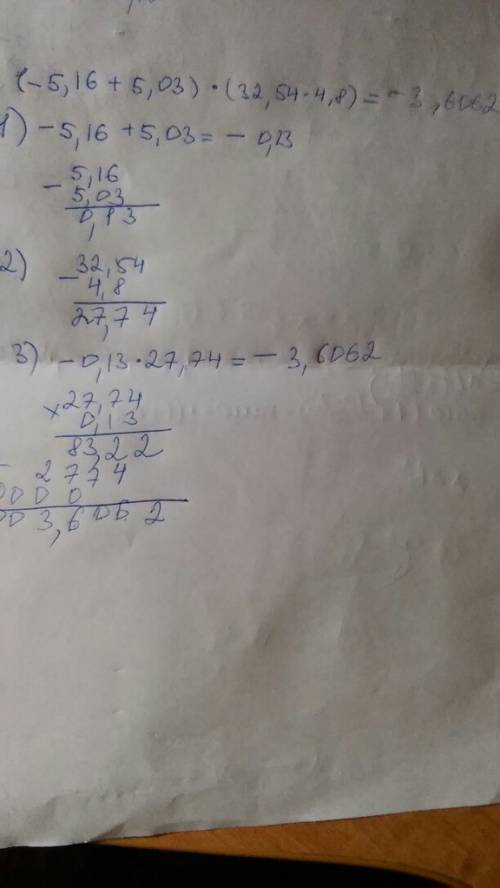 (-5,16+5,03)·(32,54-4,8)=-3,6062
1) -5,16+5,03=-0,13
- 5,16
5,03
0,13
2) - 32,54
4,8
27,74
3) -0,13·27,74=-3,6062
x 27,74
0,13
83,22
2774
0000
003,6062